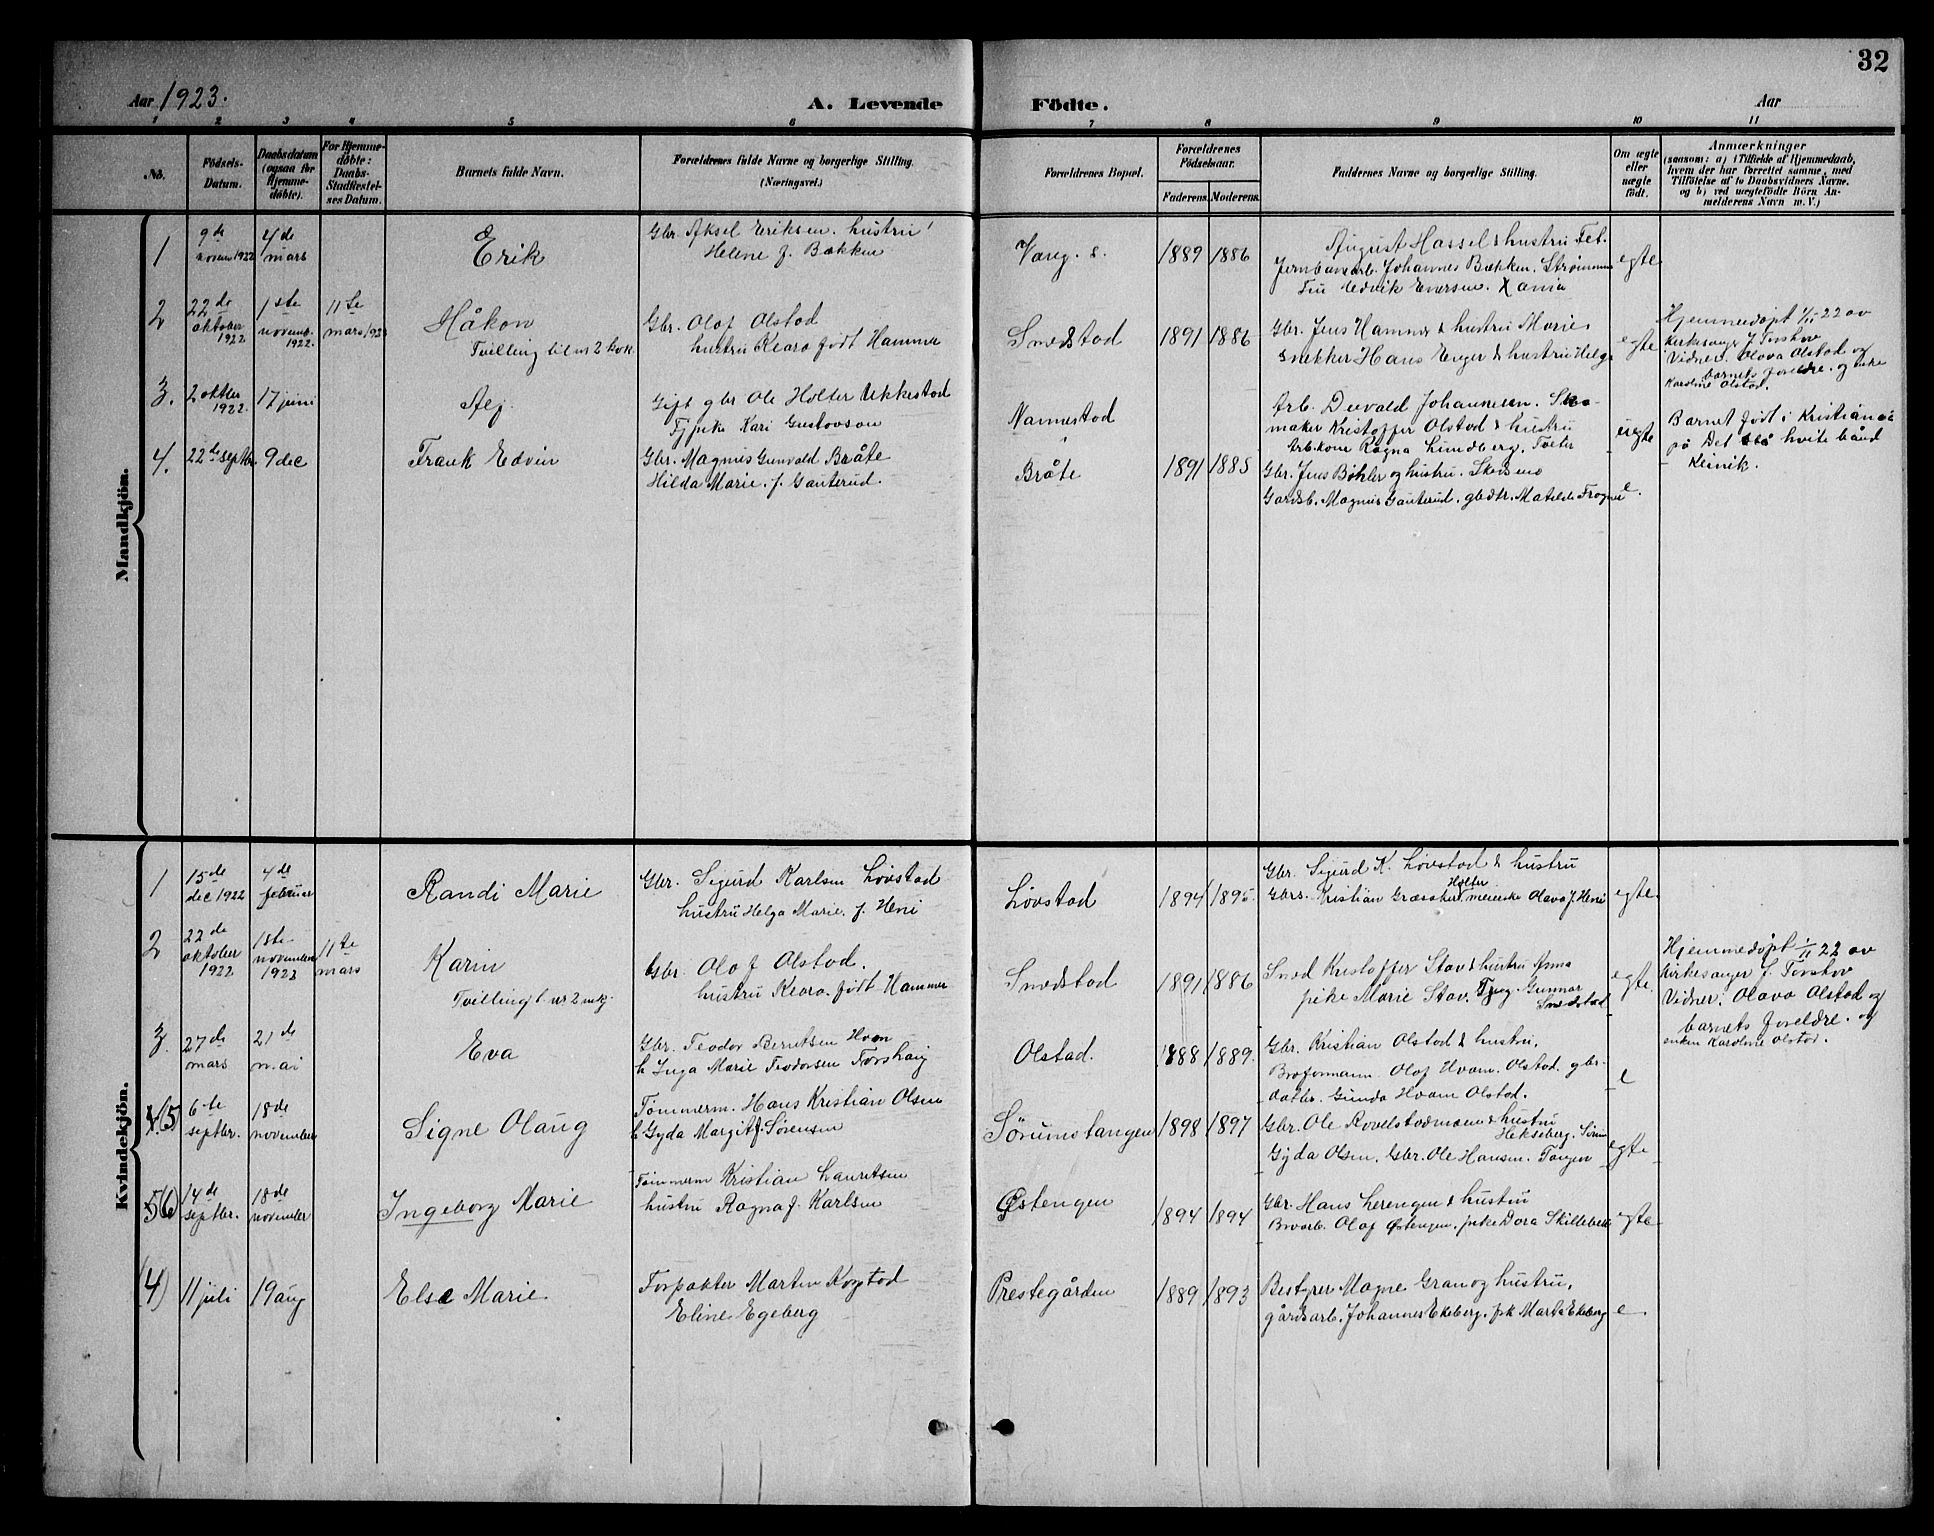 32
Aar 1923.
A. Levende Födte.
Aar
1 2 3 4 5 6 7 8 9 10 11
No.
Födsels-Datum.
Daabsdatum (ogsaa for Hjemme-döbte).
For Hjemme-döbte: Daabs-Stadfæstel-ses Datum.
Barnets fulde Navn.
Forældrenes fulde Navne og borgerlige Stilling.
(Næringsvei.)
Forældrenes Bopæl.
Forældrenes Födselsaar.
Faderens. Moderens.
Faddernes Navne og borgerlige Stilling.
Om ægte eller uægte födt.
Anmærkninger
(saasom: a) i Tilfælde af Hjemmedaab,
hvem der har forrettet samme, med
Tilföielse af to Daabsvidners Navne,
og b) ved uægtefödte Börn An-
melderens Navn m. V.)
Mandkjön.
1
9de novem 1922
4de mars
Erik
Gbr. Aksel Eriksen. hustru
Helene f. Bækken
1889 1886
August Hassel & hustru
Jernbanearb. Johannes Bækken. Strømmen
egte
2
22de oktober 1922
1ste novemb. 1922
11te mars 1923
Håkon
Tvilling til nr 2 kvk.
Gbr. Olaf Olstad
hustru Klara født Hammer
Smedstad
1891 1886
Gbr. Jens Hammer & hustru Marie
snekker Hans Enger & hustru Helga
egte
Hjemmedøpt 1/11 22 av
kirkesanger J Torshov
Vidner: Olava Olstad og
barnets foreldre. og enke
Karoline Olstad.
3.
2 oktber 1922.
17 juni
Alf.
Gift gbr Ole Holter Ukkestad
Tj pike Kari Gustavson
Nannestad
Arb. Devald Johannesen. Sko-
maker Kristoffer Olstad & hustru
Arb.kone Ragna Lundberg.
uegte
Barnet født i Kristiania
på Det hvite bånd
Klinik.
4.
22de septbr.
9 dec
Frank Edvin
Gbr. Magnus Gunvald Bråte
Hilda Marie. f. Gauterud.
Bråte
1891 1885
Gbr. Jens Bøhler og hustru. Skismo
Gardsb. Magnus Gauterud. gbdtr. Matilde Frogner
e.
Kvindekjön.
1
15de dec 1922
4de februar
Randi Marie
Gbr. Sigurd Karlsen Løvstad
hustru Helga Marie. f. Heni
Løvstad
1894 1895.
Gbr. Sigurd K. Løvstad & hustru
Gbrs. Kristian Holter meierske Olava J. Heni
egte.
2
22de oktober 1922
1ste november 1923
11te mars
Karin
Tvilling t. nr 2 mk.
Gbr. Olaf Olstad.
hustru Klara. født Hammer
Smedstad
1891 1886
Smed Kristoffer Stav & hustru Anna
pike Marie Stav. Gunnar
Smedstad
egte.
Hjemmedøpt 1/11 22 av
kirkesanger J. Torshov
Vidner: Olava Olstad og
barnets foreldre. og
enken Karoline Olstad.
3.
27de mars
21de mai
Eva
Gbr. Teodor Berntsen Hvam
h Inga Marie Teodorsen Torshaug
Olstad.
1888 1889.
Gbr. Kristian Olstad & hustru,
Brøformann Olaf Hvam. Olstad. gbr-
datter. Gunda Hvam Olstad.
e
4. (5)
6te septbr.
18de november
Signe Olaug
Tømmerm. Hans Kristian Olsen
h Gyda Margit f. Sørensen
Sørumstangen
1898 1897
Gbr. Ole Rovelstadmoen & hustru
Gyda Olsen. Gbr. Ole Hansen. Tangen
egte
5 (6)
14de septbr.
18de november
Ingeborg Marie
Tømmerm Kristian Lauritsen
hustru Ragna f. Karlsen
Østengen
1894 1894
Gbr. Hans Lerengen & hustru
Olaf Østengen. pike Dora Skillebek
egte
(4)
11 juli
19 aug
Else Marie.
Forpakter Martin Kogstad
Eline Egeberg
Prestegården
1889 1893
Bestyrer Magne Gran og hustru,
gårdsarb. Johannes Ekeberg. pk Marta Ekeberg
e.